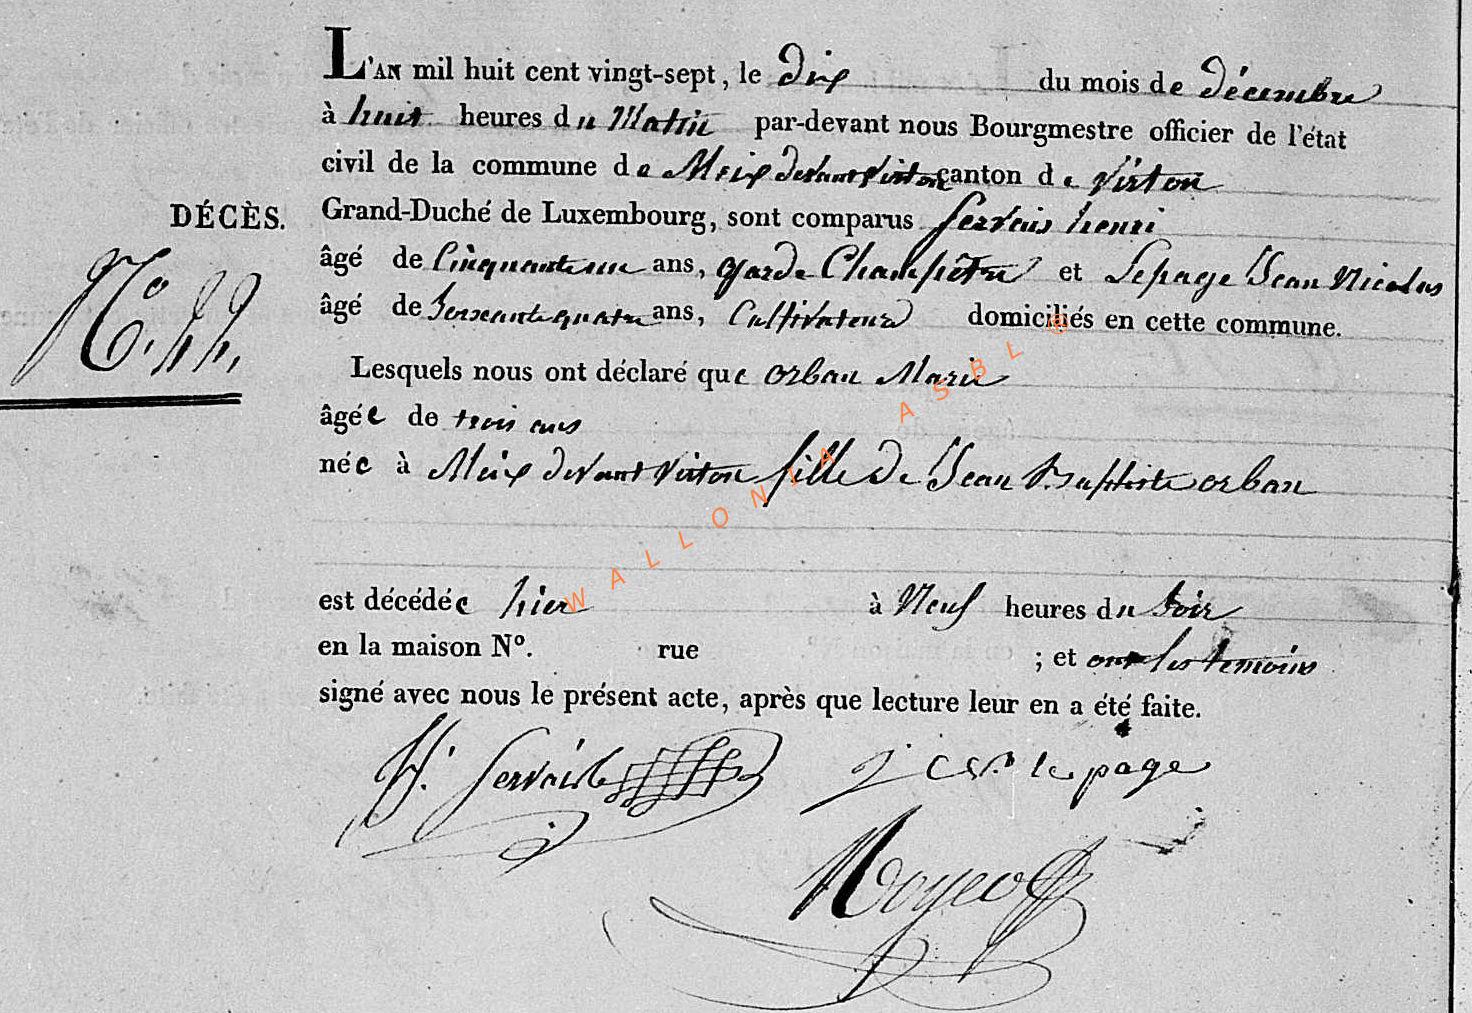 L'AN mil huit cent vingt-sept, le dix du mois de décembre
à huit heures du Matin par-devant nous Bourgmestre officier de l'état
civil de la commune de Meix devant Virton canton de Virton
DÉCÈS. Grand-Duché de Luxembourg, sont comparus Servais henri
âgé de Cinquante un ans, garde Champêtre et Lepage Jean Nicolas
âgé de soixante quatre ans, Cultivateurs domiciliés en cette commune.
Lesquels nous ont déclaré que orban Marie
âgée de trois ans
née à Meix devant Virton fille de Jean Baptiste orban
est décédée hier à Neuf heures du soir
en la maison N°. rue ; et ont les temoins
signé avec nous le présent acte, après que lecture leur en a été faite.
H. Servais le page
WALLONIA ASBL ©